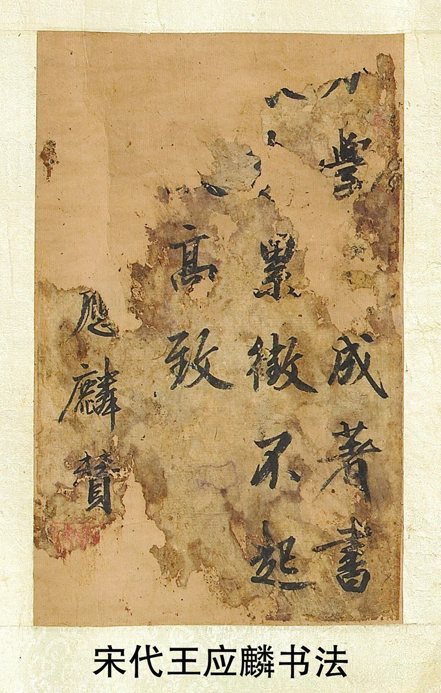 學成著書
累徵不起
高致
應麟贊
宋代王应麟书法